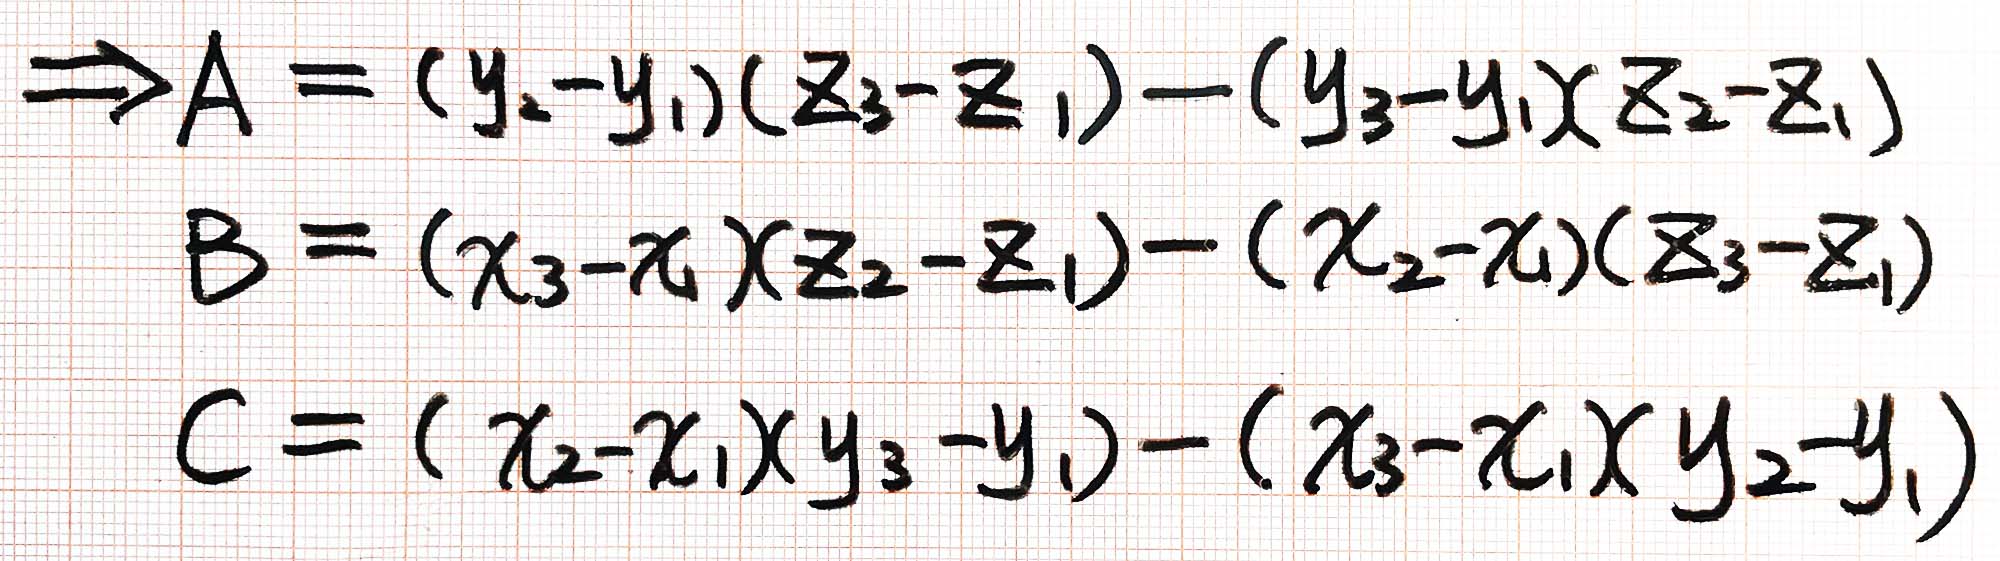 ⇒A = (y₂-y₁)(z₃-z₁)-(y₃-y₁)(z₂-z₁)
B = (x₃-x₁)(z₂-z₁)-(x₂-x₁)(z₃-z₁)
C = (x₂-x₁)(y₃-y₁)-(x₃-x₁)(y₂-y₁)